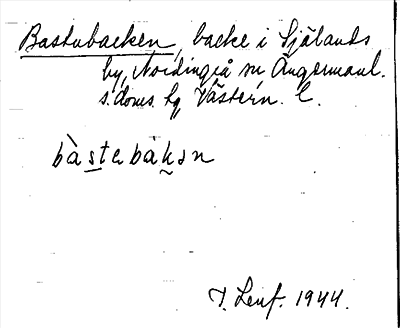 Bastubacken, backe i Själands
by, Nordingrå sn Ångermanl.
s. doms. hq Västern. l.
bàstebàkən
J. Lenf. 1944.